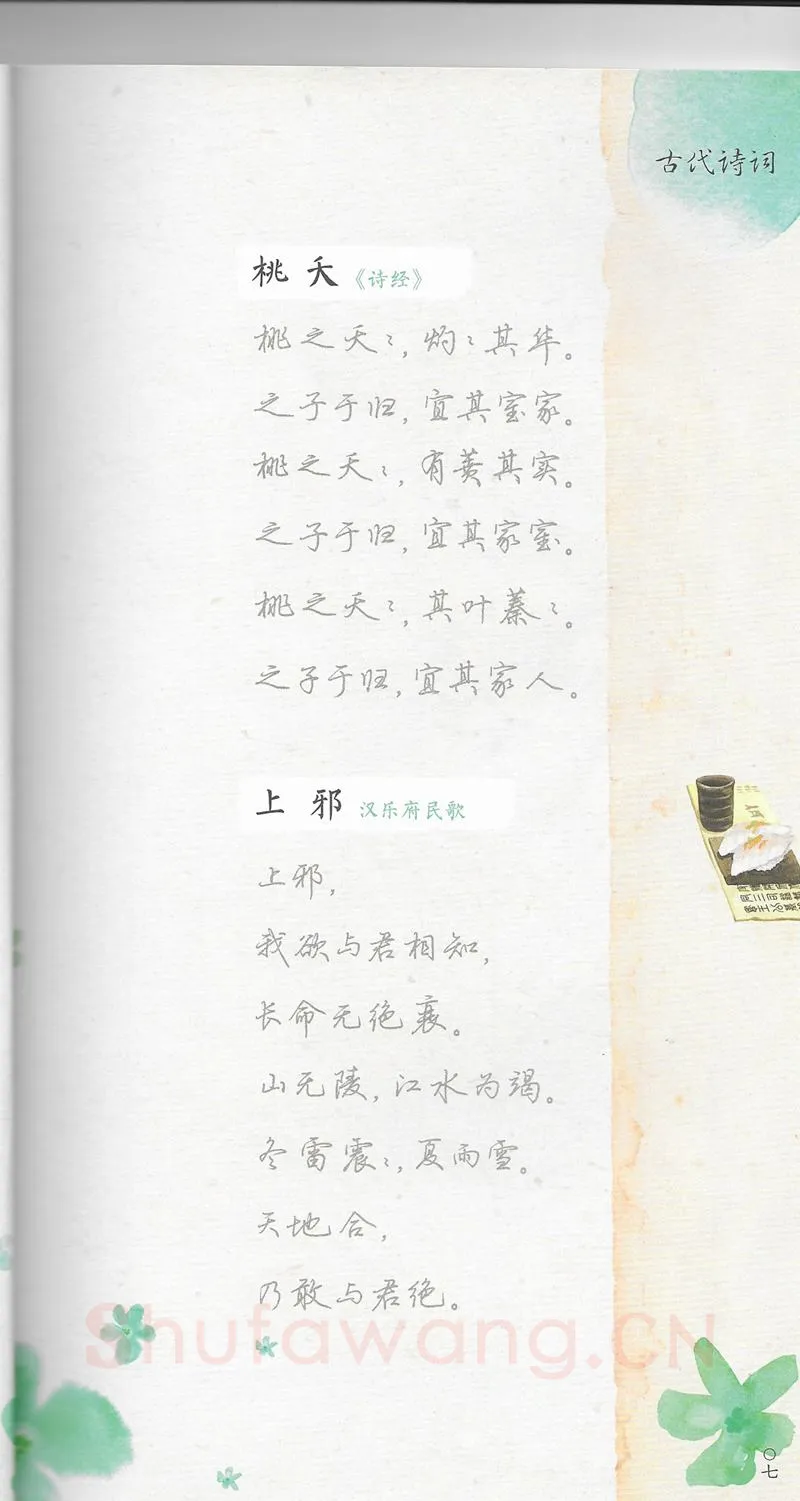 古代诗词
桃 夭 《诗经》
桃之夭〻，灼〻其华。
之子于归，宜其室家。
桃之夭〻，有蕡其实。
之子于归，宜其家室。
桃之夭〻，其叶蓁〻。
之子于归，宜其家人。
上 邪 汉乐府民歌
上邪，
我欲与君相知，
长命无绝衰。
山无陵，江水为竭。
冬雷震〻，夏雨雪。
天地合，
乃敢与君绝。
Shufawang.CN
〇七